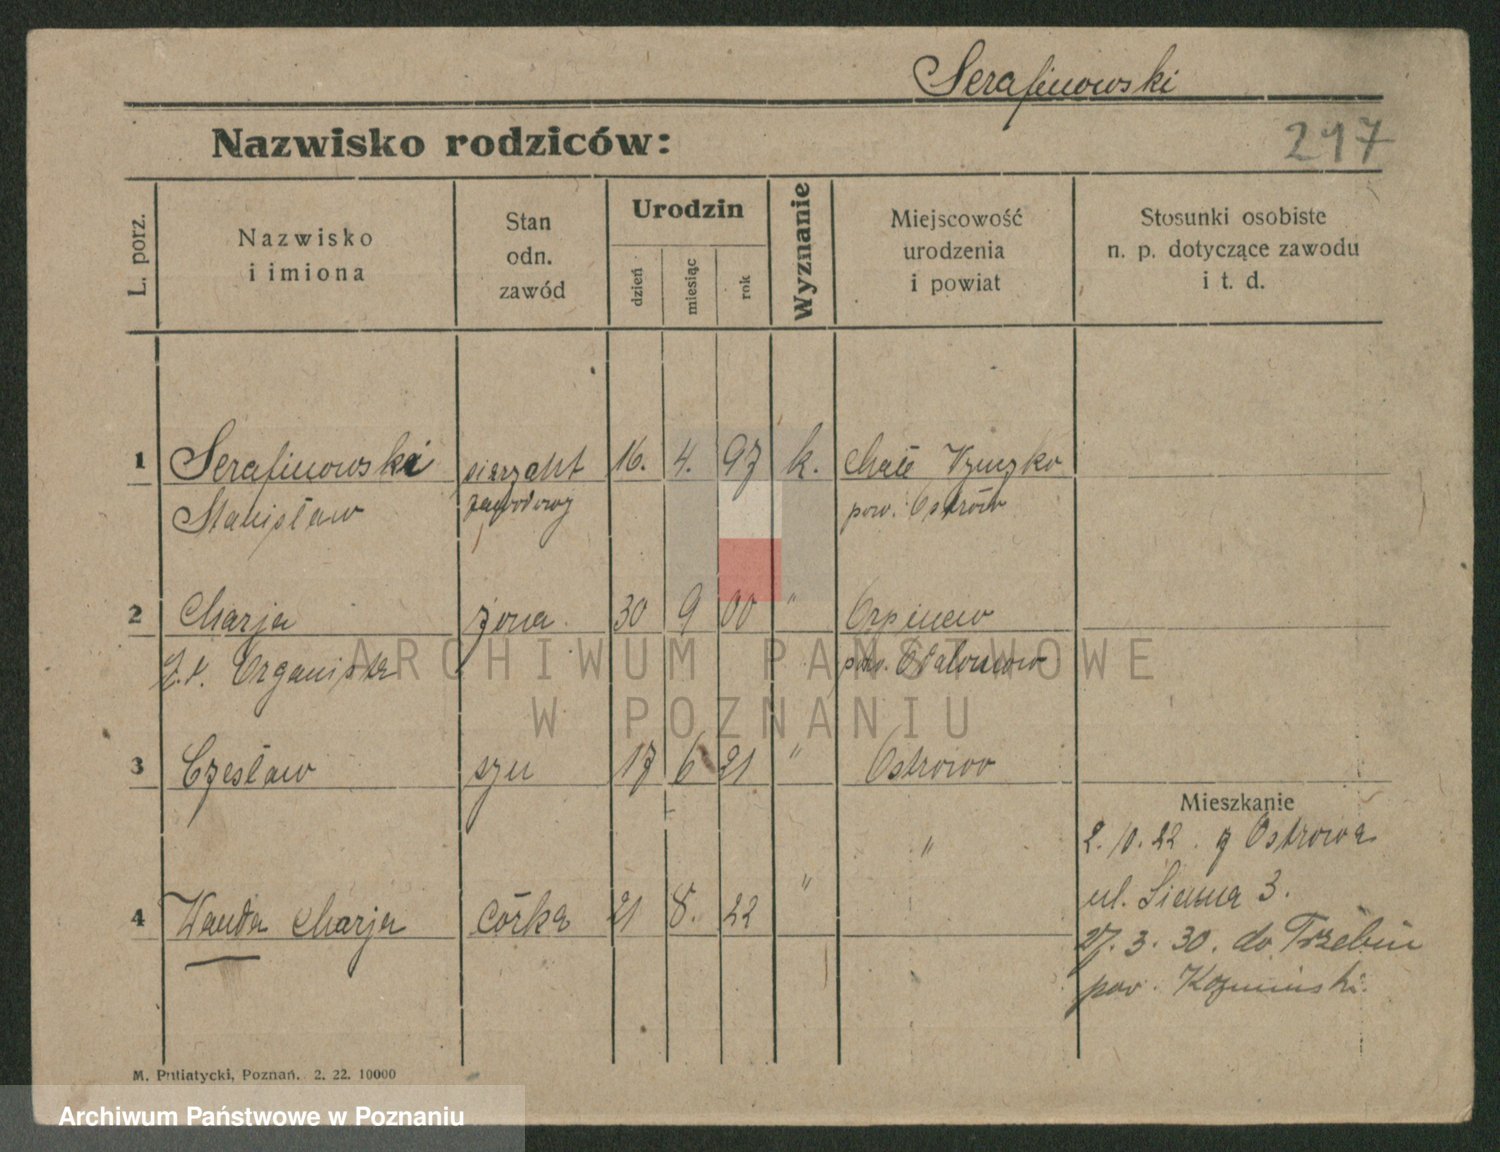 Serafinowski
Nazwisko rodziców:
217
L. porz.
Nazwisko
i imiona
Stan
odn.
zawód
Urodzin
dzień
miesiąc
rok
Wyznanie
Miejscowość
urodzenia
i powiat
Stosunki osobiste
n. p. dotyczące zawodu
i t. d.
1 Serafinowski sierzant 16. 4. 97 k. Małe
Stanisław zawodowy pow. Ostrów
2 Marja żona 30 9 00 "
z.d. Organista pow.
ARCHIWUM PAŃSTWOWE
W POZNANIU
3 Czesław syn 17 6 21 " Ostrowo
Mieszkanie
2. 10. 22. z Ostrowa
"
ul. Sienna 3.
4 Wanda Marja córka 21 8. 22 "
27. 3. 30. do Trzebin
pow. Kozmiński.
M. Putiatycki, Poznań. 2. 22. 10000
Archiwum Państwowe w Poznaniu